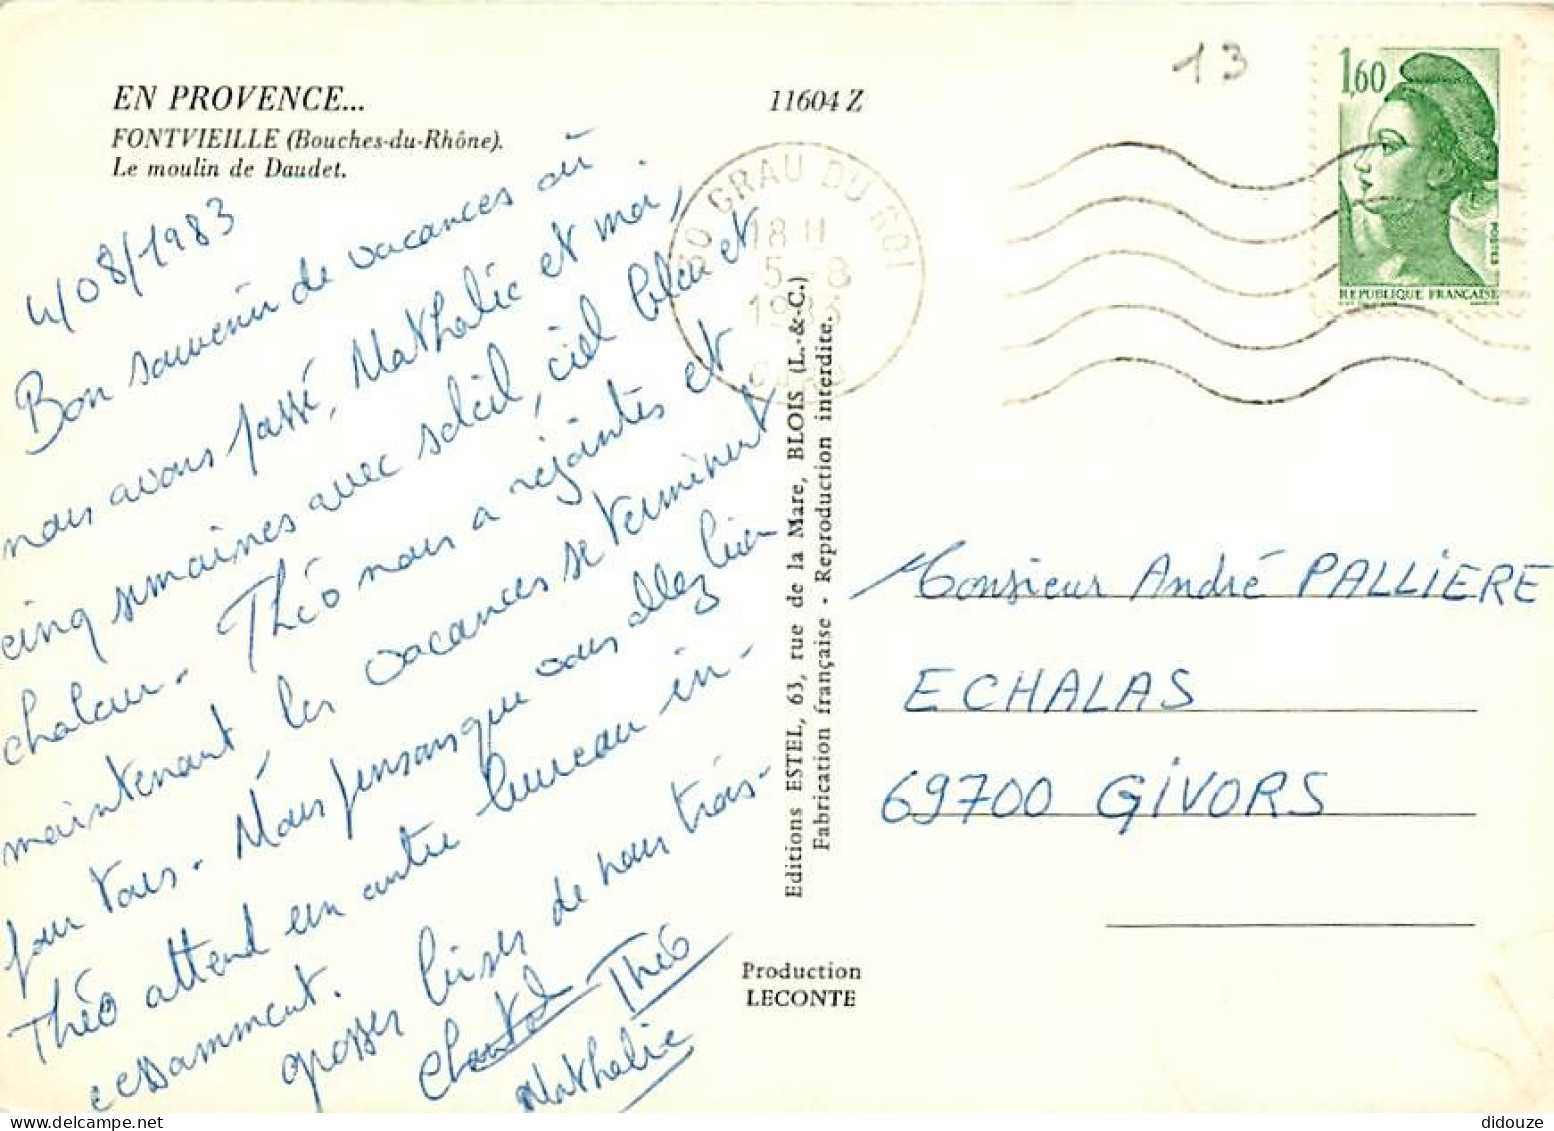 EN PROVENCE...
FONTVIEILLE (Bouches-du-Rhône).
Le moulin de Daudet.
11604 Z
13
1,60
POSTES
REPUBLIQUE FRANÇAISE
30 GRAU DU ROI
18 H
5 - 8
1983
GARD
4/08/1983
Bon souvenir de vacances où
nous avons passé, Nathalie et moi,
cinq semaines avec soleil, ciel bleu et
chaleur. Théo nous a rejointes et
maintenant, les vacances se terminent
pour tous. Nous pensons que vous allez bien
Théo attend un autre bureau in-
cessamment.
grosses bises de nous trois.
Chantal Théo
Nathalie
Editions ESTEL, 63, rue de la Mare, BLOIS (L.-&-C.)
Fabrication française - Reproduction interdite.
Production
LECONTE
Monsieur André PALLIERE
ECHALAS
69700 GIVORS
didouze